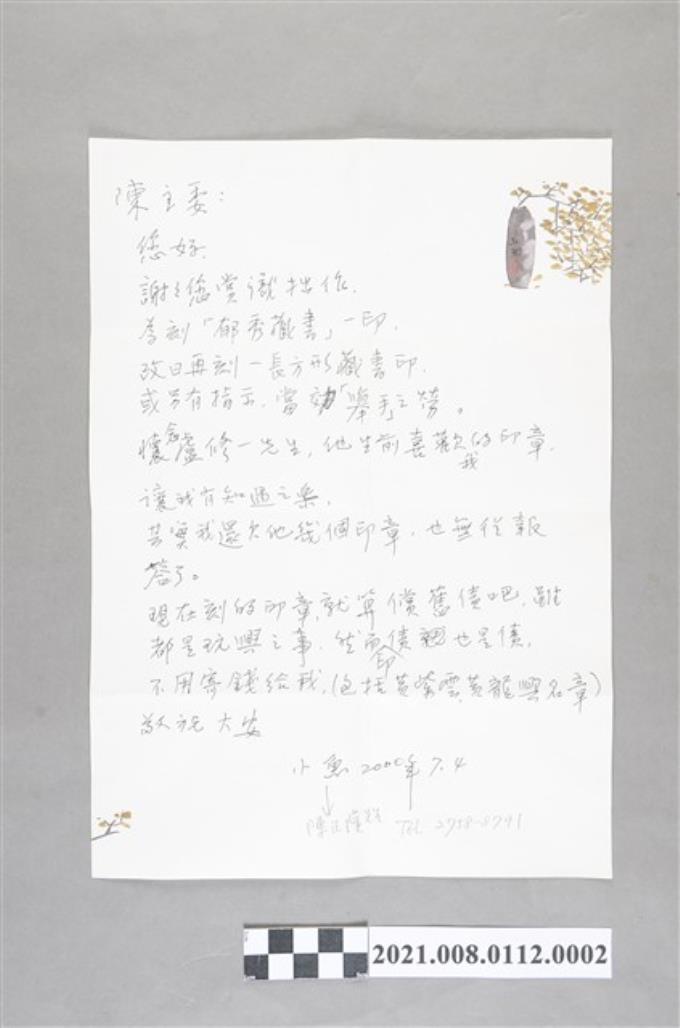 陳主委：
您好.
謝謝您賞識拙作.
為刻「郁秀藏書」一印.
改日再刻一長方形藏書印.
或另有指示.當効「舉手」之勞。
懷念盧修一先生,他生前喜歡我的印章.
讓我有知遇之樂.
其實我還欠他幾個印章.也無從報
答了。
現在刻的印章,就算償舊債吧.雖
都是玩興之事.然而印債也是債.
不用寄錢給我.(包括黃紫雲、黃龍興名章)
敬祝 大安
小魚 2000年7.4
陳正隆 Tel 2758-8791
2021.008.0112.0002